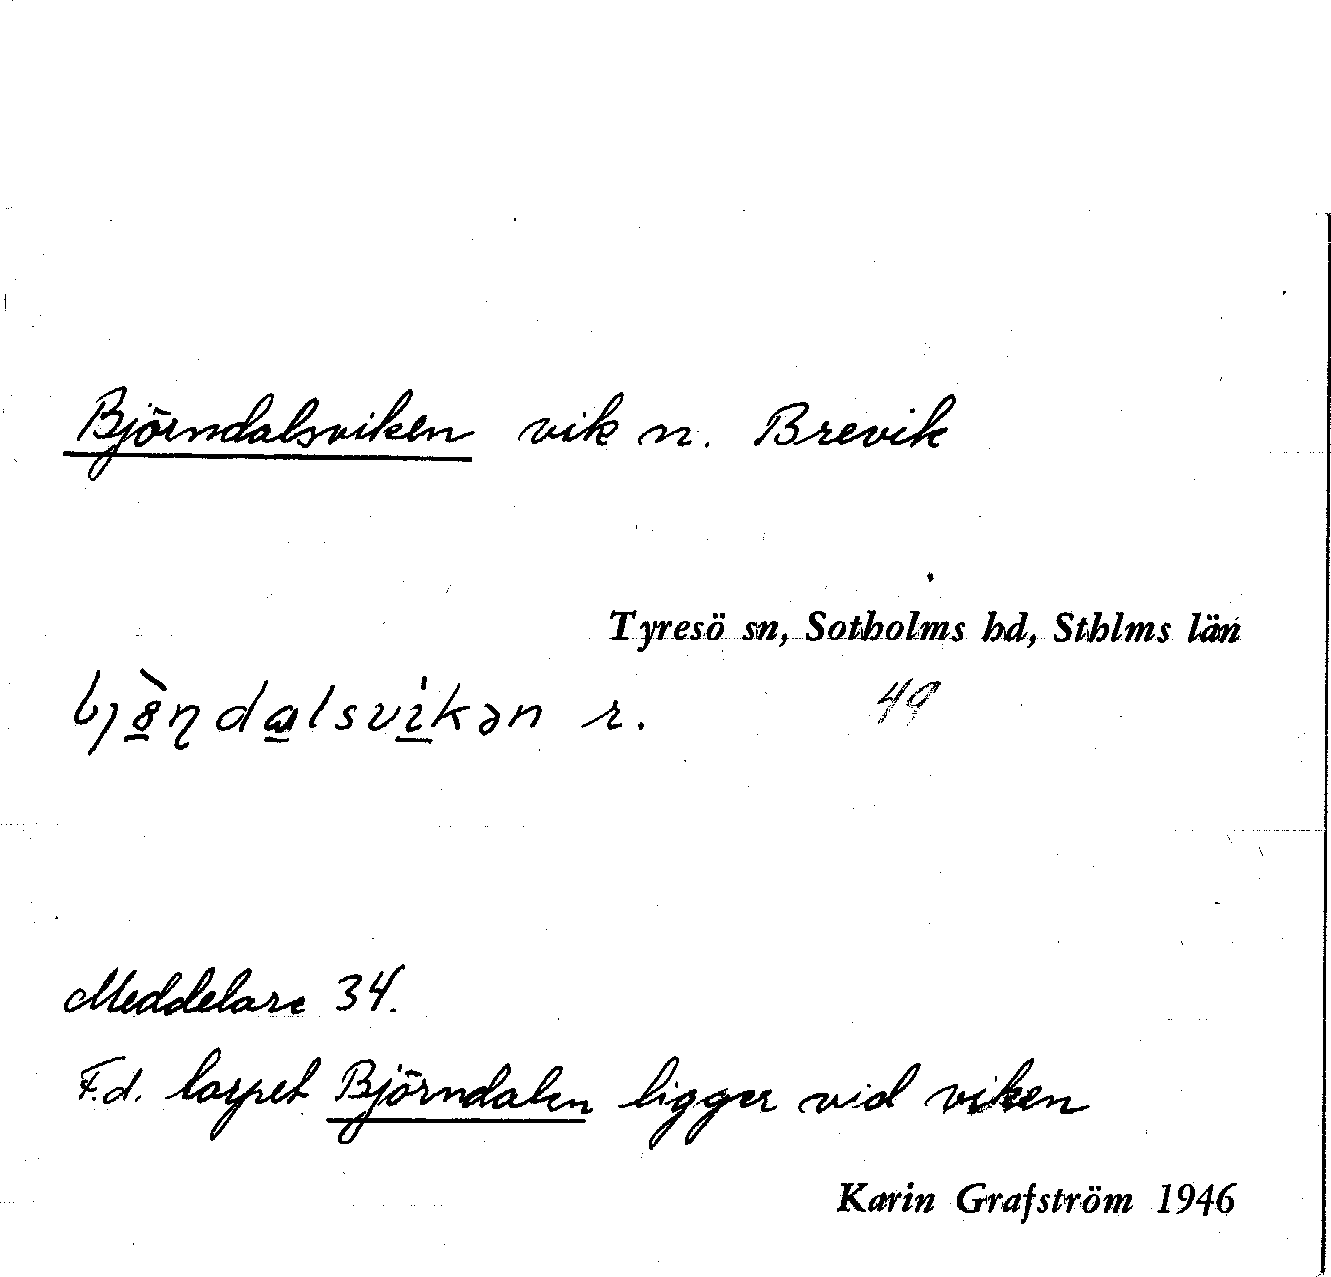 Björndalsviken vik n. Brevik
Tyresö sn, Sotholms hd, Sthlms län
bjö̀ṇdalsvíkən r. 49
Meddelare 34.
F.d. torpet Björndalen ligger vid viken
Karin Grafström 1946